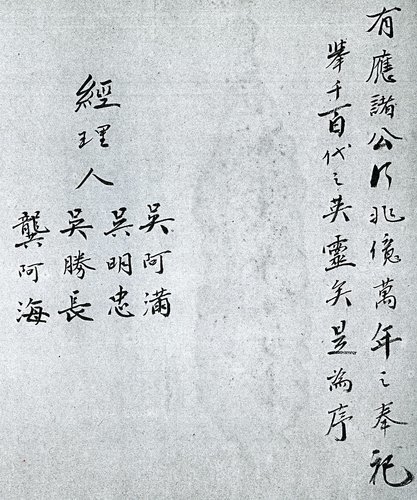 有應諸公以兆億萬年之奉祀
舉千百代之英靈矣是為序
經理人
吳阿滿
吳明忠
吳勝長
龔阿海